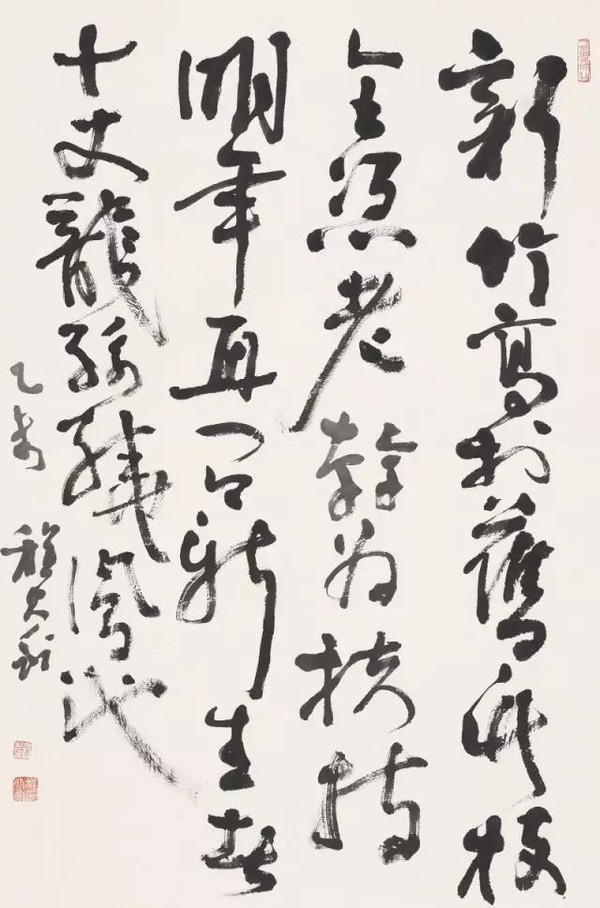 新竹高於舊竹枝
全憑老幹為扶持
明年再有新生者
十丈龍孫繞鳳池
乙未 程大利